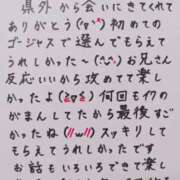 県外から会いにきてくれて
ありがとう(˶ᵔᵕᵔ˶)初めての
ゴージャスで選んでもらえて
うれしかった〜(^^)お兄さん
反応いいから攻めてて楽し
かったよ(≧▽≦)何回もイクの
がまんしてたから最後す
ごかったね(//ω//)スッキリして
もらえてうれしかったです
お話もいろいろできて楽